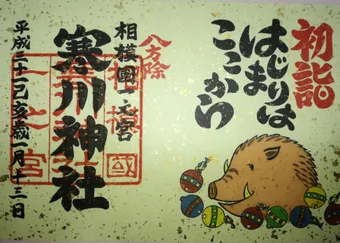 初詣
はじまりは
ここから
八方除
相模國一之宮
寒川神社
平成三十一己亥歳一月十三日